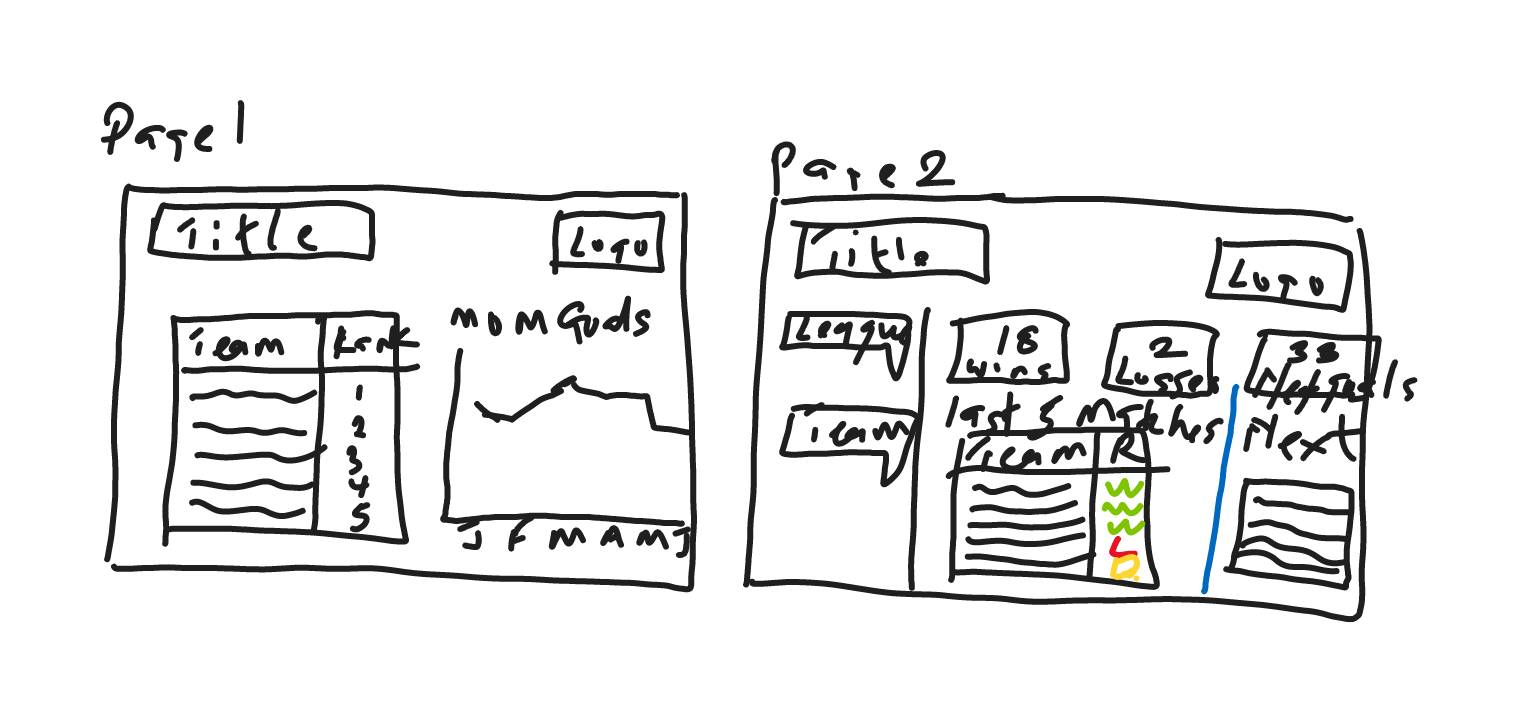 Page 1
Title
Logo
Team Rank
1
2
3
4
5
MOM Goals
J F M A M J
Page 2
Title
Logo
League
Team
18
Wins
2
Losses
33
Net goals
last 5 Matches
Team R
W
W
W
L
D
Next